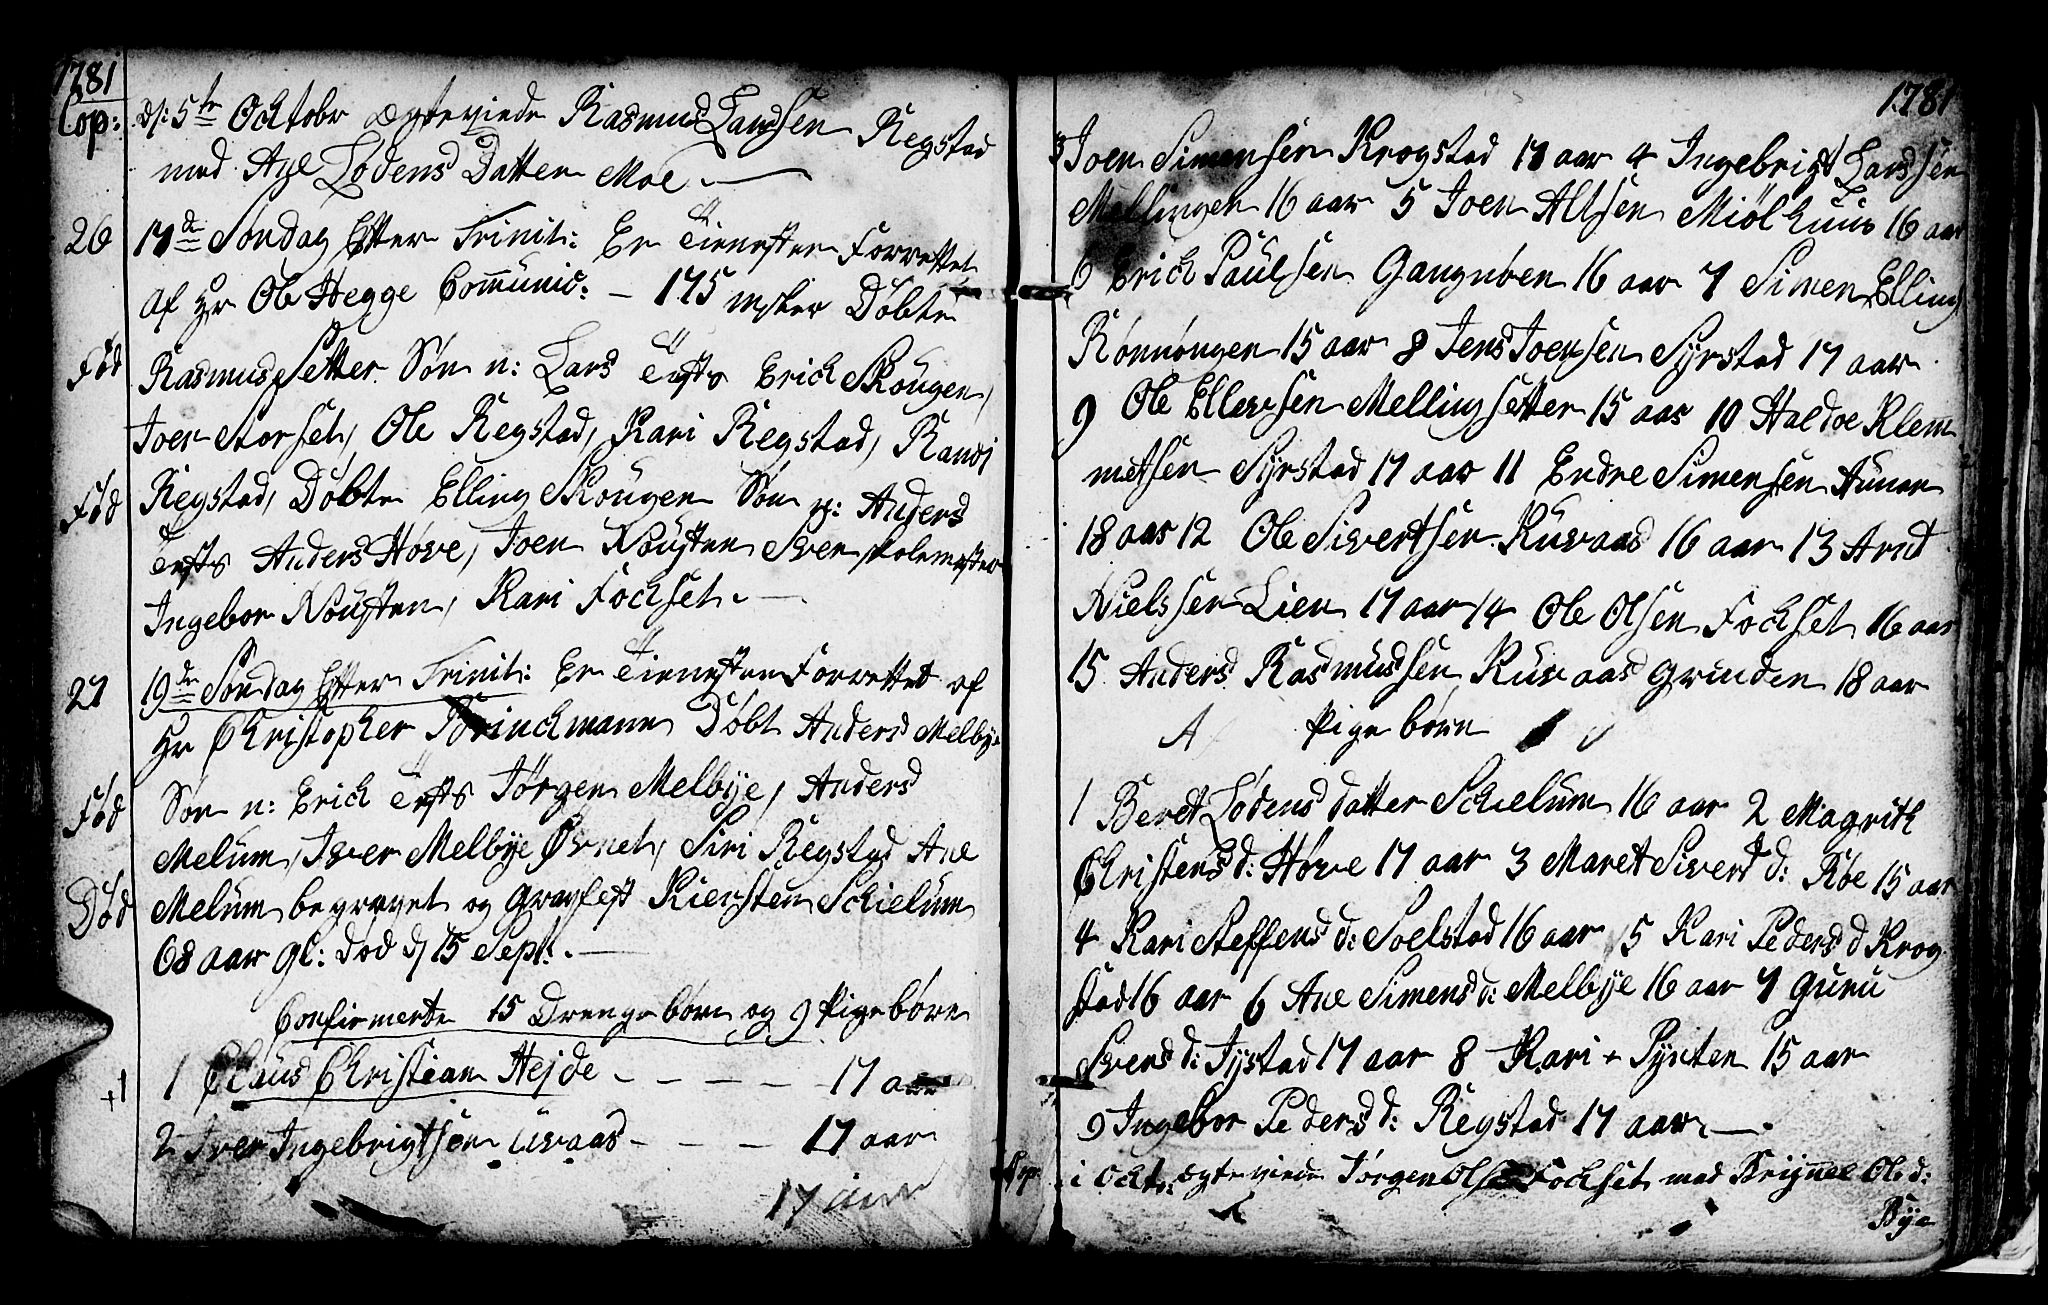 1781
Cop: d: 5te Octobr ægteviede Rasmus Larssen Regstad
med Ane Lodens Datter Moe. —
26 17de Søndag Efter Trinit: Er Tienesten Forrettet
af Hr Ole Hegge Communic: — 175 Døbte
Fød Rasmus Setter Søn n: Lars Test Erick Skougen,
Joen Storset, Ole Regstad, Kari Regstad, Randi
Fød Regstad, Døbte Elling Skougen Søn n: Anders
Test Anders Hove, Joen Nousten Sven skolemester
Ingebor Nousten, Kari Fockset. —
27 19de Søndag Efter Trinit: Er Tienesten Forrettet af
Hr Christopher Brinckmann Døbt Anders Melbye
Fød Søn n: Erick Test Jørgen Melbye, Anders
Melum, Iver Melbye Øvnet, Siri Regstad Ane
Død Melum begravet og gravfest Kiersten Schielum
68 aar gl: død d 15 Sept. —
Confirmerte 15 Drenge børn og 9 Pige børn
+1 1 Claus Christian Hejde - - - - - 17 aar
2 Iver Ingebrigtsen Uvaas - - - 17 aar
17 aar
1781
3 Joen Simensen Krogstad 17 aar 4 Ingebrigt Larssen
Mellingen 16 aar 5 Joen Altsen Miølhuus 16 aar
6 Erick Paulsen Gangnøen 16 aar 7 Simen Elling
Rønnøngen 15 aar 8 Jens Joensen Syrstad 17 aar
9 Ole Ellevsen Mellingsetter 15 aar 10 Haldoe Klem
metsen Syrstad 17 aar 11 Endre Simensen Aunan
18 aar 12 Ole Sivertsen Kuvaas 16 aar 13 Arnt
Nielssen Lien 17 aar 14 Ole Olsen Fockset 16 aar
15 Anders Rasmussen Kuvaas grinden 18 aar
A Pige børn
1 Beret Lodens datter Schielum 16 aar 2 Magrith
Christens d: Hove 17 aar 3 Maret Sivert d: Røe 15 aar
4 Kari Steffens d: Soelstad 16 aar 5 Kari Peders d Krog
stad 16 aar 6 Ane Simens d: Melbye 16 aar 7 Guru
Svens d: Jystad 17 aar 8 Kari + Pynten 15 aar
9 Ingebor Peders d: Regstad 17 aar —.
Cop. i Oct: ægteviede Jørgen Olsen Fockset med Brynel Ole d:
Bye